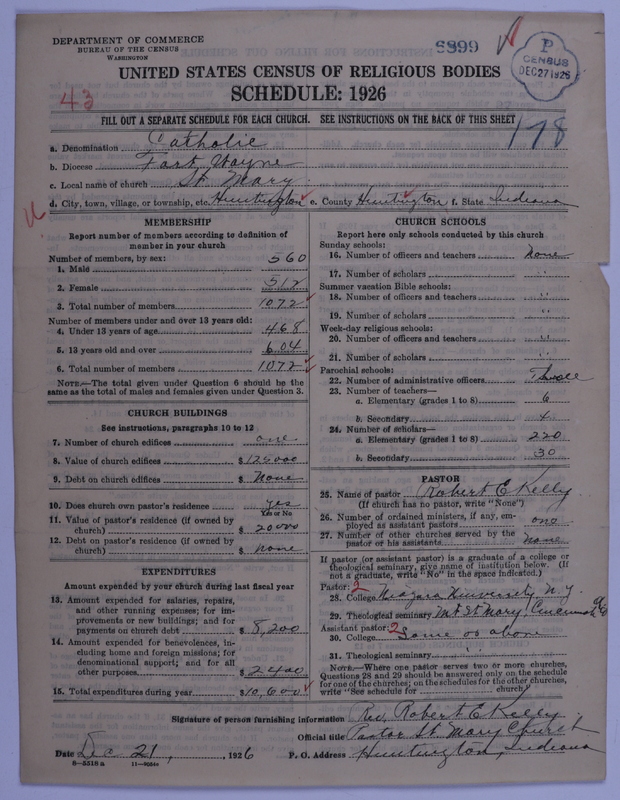 DEPARTMENT OF COMMERCE
BUREAU OF THE CENSUS
WASHINGTON
S899
P
CENSUS
DEC 27 1926
UNITED STATES CENSUS OF RELIGIOUS BODIES
SCHEDULE: 1926
43
178
FILL OUT A SEPARATE SCHEDULE FOR EACH CHURCH. SEE INSTRUCTIONS ON THE BACK OF THIS SHEET
a. Denomination Catholic
b. Diocese Fort Wayne
c. Local name of church St. Mary
d. City, town, village, or township, etc. Huntington e. County Huntington f. State Indiana
MEMBERSHIP
Report number of members according to definition of
member in your church
Number of members, by sex:
1. Male 560
2. Female 512
3. Total number of members 1072
Number of members under and over 13 years old:
4. Under 13 years of age 468
5. 13 years old and over 604
6. Total number of members 1072
NOTE.—The total given under Question 6 should be the
same as the total of males and females given under Question 3.
CHURCH BUILDINGS
See instructions, paragraphs 10 to 12
7. Number of church edifices one
8. Value of church edifices $ 125000
9. Debt on church edifices $ None
10. Does church own pastor's residence yes
Yes or No
11. Value of pastor's residence (if owned by
church) $ 20000
12. Debt on pastor's residence (if owned by
church) $ none
EXPENDITURES
Amount expended by your church during last fiscal year
13. Amount expended for salaries, repairs,
and other running expenses; for im-
provements or new buildings; and for
payments on church debt $ 8,200
14. Amount expended for benevolences, in-
cluding home and foreign missions; for
denominational support; and for all
other purposes $ 2400
15. Total expenditures during year $ 10,600
CHURCH SCHOOLS
Report here only schools conducted by this church
Sunday schools:
16. Number of officers and teachers none
17. Number of scholars "
Summer vacation Bible schools:
18. Number of officers and teachers "
19. Number of scholars "
Week-day religious schools:
20. Number of officers and teachers "
21. Number of scholars "
Parochial schools:
22. Number of administrative officers Three
23. Number of teachers—
a. Elementary (grades 1 to 8) 6
b. Secondary 4
24. Number of scholars—
a. Elementary (grades 1 to 8) 220
b. Secondary 30
PASTOR
25. Name of pastor Robert E Kelly
(If church has no pastor, write "None")
26. Number of ordained ministers, if any, em-
ployed as assistant pastors one
27. Number of other churches served by the
pastor or his assistants none
If pastor (or assistant pastor) is a graduate of a college or
theological seminary, give name of institution below. (If
not a graduate, write "No" in the space indicated.)
Pastor: 2
28. College Niagara University, N.Y.
29. Theological seminary Mt St Mary, Cincinnati
Assistant pastor: 2
30. College Same as above
31. Theological seminary " "
NOTE.—Where one pastor serves two or more churches,
Questions 28 and 29 should be answered only on the schedule
for one of the churches; on the schedules for the other churches,
write "See schedule for church"
Signature of person furnishing information Rev. Robert E Kelly
Official title Pastor St. Mary Church
Date Dec 21, 1926 P. O. Address Huntington, Indiana
8—5518 a